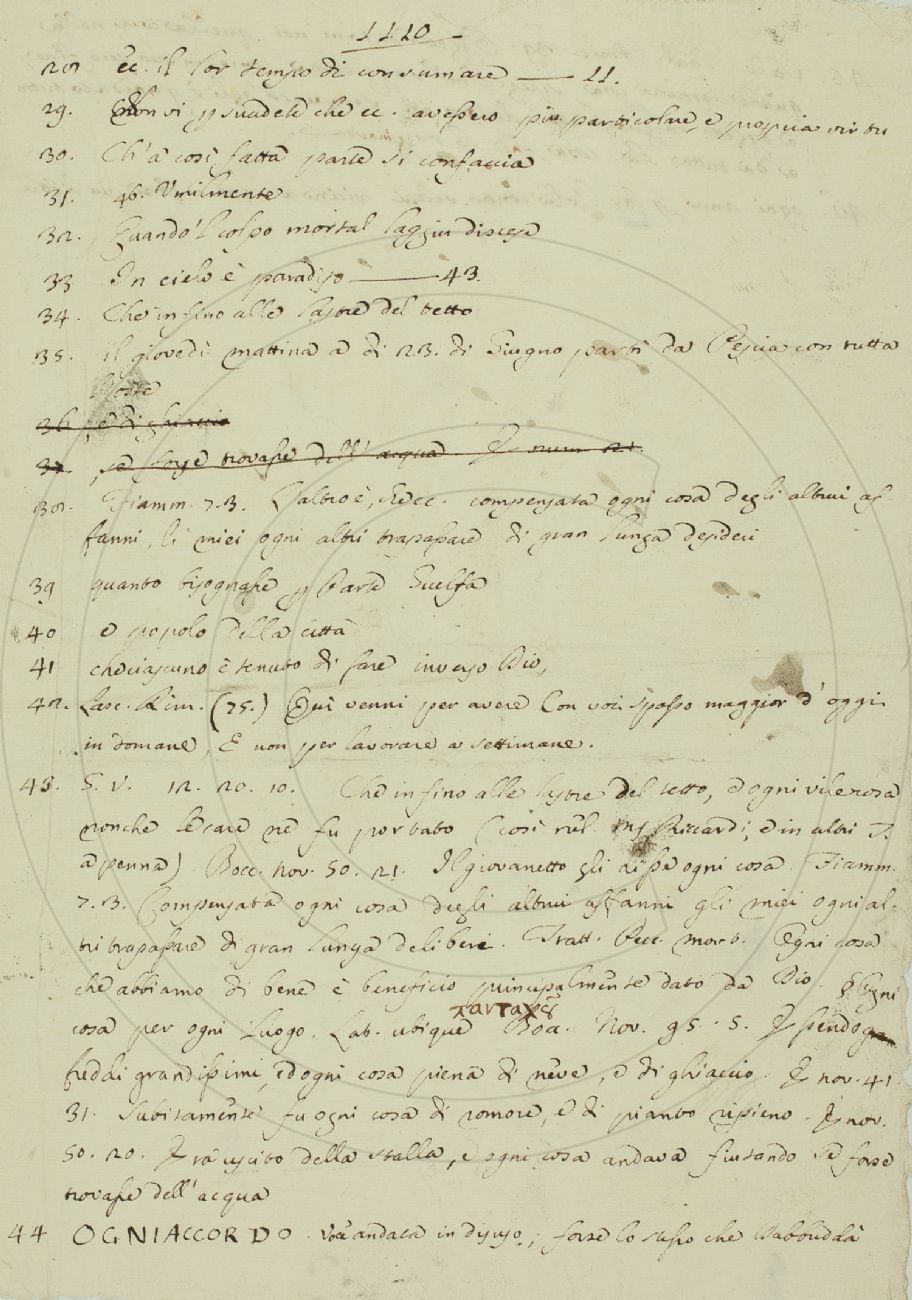 1110
28 ec. il lor tempo di consumare — 11.
29. Non vi psuadete che ec. avessero piu particolare, e propria virtu
30. Ch'a così fatta parte si confaccia
31. 46. Umilmente
32. Quando 'l colpo mortal laggiu discese
33 In cielo è paradiso — 43.
34. Che in fino alle lastre del tetto
35. il giovedì mattina a di 23. di Giugno partì da Pescia con tutta
l'oste
36. , e di ghiaccio
37. , se forse trovasse dell'acqua. E num 21.
38. Fiamm. 7.3. L'altro è, che ec. compensata ogni cosa degli altrui af-
fanni, li miei ogni altri trapassare di gran lunga desideri
39 quanto bisognasse p Parte Guelfa
40 e popolo della città
41 che ciascuno è tenuto di fare inverso Dio,
42. Lasc. Rim. (75.) Qui venni per avere Con voi spasso maggior d'oggi
in domane, E non per lavorare a settimane.
43. §. V. 12. 20. 10. Che in fino alle lastre del tetto, e ogni vile cosa
nonche le care ne fu portato (così nel ms Riccardi, e in altri T.
a penna) Bocc. nov. 50. 21. Il giovanetto gli disse ogni cosa. Fiamm.
7.3. Compensata ogni cosa degli altrui affanni gli miei ogni al-
tri trapassare di gran lunga deliberi. Tratt. Pecc. mort. Ogni cosa
che abbiamo di bene è beneficio principalmente dato da Dio. § Ogni
cosa per ogni Luogo. Lat. ubique Bocc. Nov. 95. 5. Essendo
freddi grandissimi, ed ogni cosa piena di neve, e di ghiaccio. E nov. 41.
31. Subitamente fu ogni cosa di romore, e di pianto ripieno. E nov.
50. 20. Era uscito della stalla, e ogni cosa andava fiutando se forse
trovasse dell'acqua
44 OGNIACCORDO. Voce andata in disuso; forse lo stesso che Babbuddà